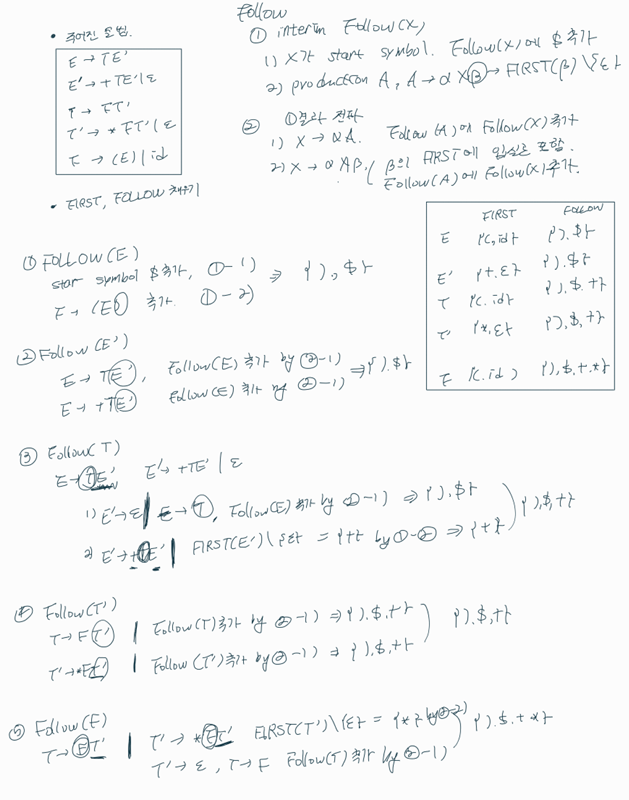 • 주어진 문법.
E → TE'
E' → +TE' | ε
T → FT'
T' → * FT' | ε
F → (E) | id
• FIRST, FOLLOW 채우기
Follow
① interim Follow(X)
1) X가 start symbol. Follow(X)에 $ 추가
2) production A, A → α X β → FIRST(β) \ {ε}
② ①결과 전파
1) X → αA. Follow(A)에 Follow(X) 추가
2) X → αAβ, ( β의 FIRST에 입실론 포함.
Follow(A)에 Follow(X) 추가.
FIRST FOLLOW
E {(, id} {), $}
E' {+, ε} {), $}
T {(, id} {), $, +}
T' {*, ε} {), $, +}
F {(, id} {), $, +, *}
① FOLLOW(E)
star symbol $추가, ①-1) ⇒ {), $}
F → (E) 추가. ①-2)
② Follow(E')
E → TE', Follow(E) 추가 by ②-1) ⇒ {), $}
E → +TE' Follow(E) 추가 by ②-1)
③ Follow(T)
E → TE' E' → +TE' | ε
1) E' → ε | E → T, Follow(E) 추가 by ②-1) ⇒ {), $}
2) E' → +TE' | FIRST(E') \ {ε} = {+} by ①-② ⇒ {+}
{), $, +}
④ Follow(T')
T → FT' | Follow(T) 추가 by ②-1) ⇒ {), $, +}
T' → *FT' | Follow(T') 추가 by ②-1) ⇒ {), $, +}
{), $, +}
⑤ Follow(F)
T → FT' | T' → *FT' FIRST(T') \ {ε} = {*} by ②-2)
T' → ε, T → F Follow(T) 추가 by ②-1)
{), $, +, *}